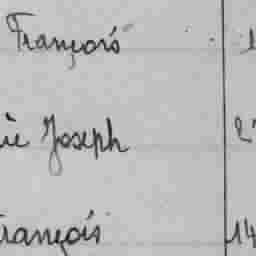 François 1
ie Joseph 2
rançois 14